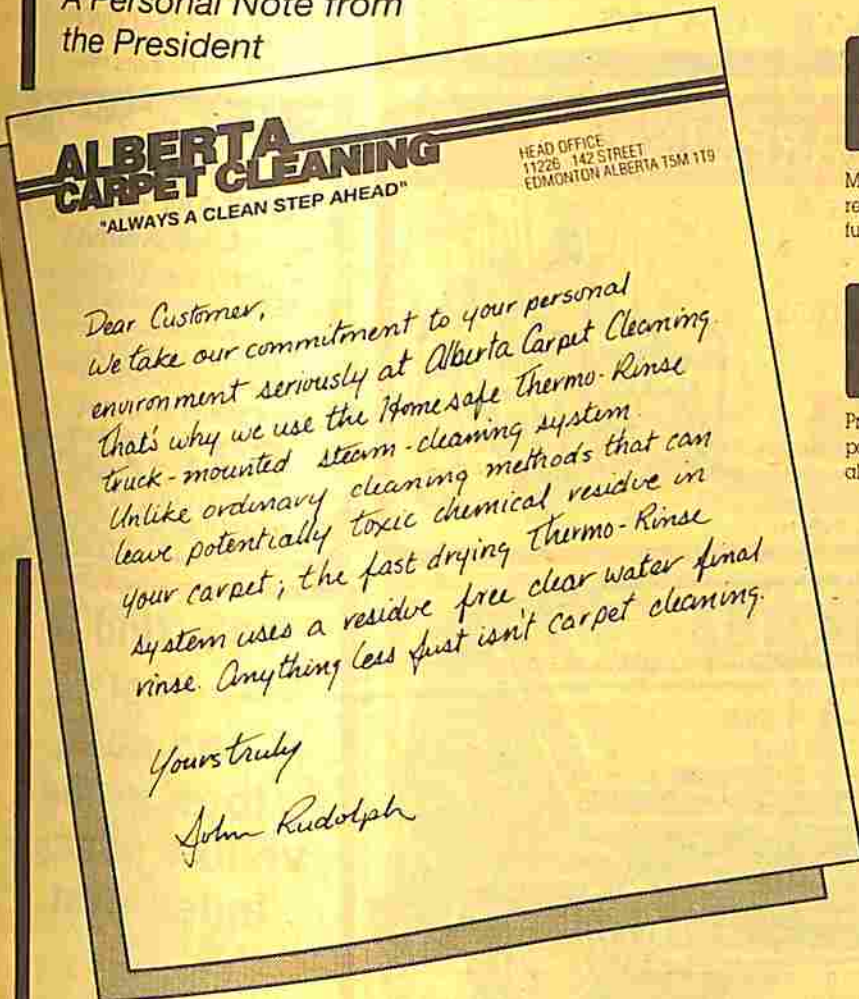 A Personal Note from
the President
ALBERTA
CARPET CLEANING
"ALWAYS A CLEAN STEP AHEAD"
HEAD OFFICE
11226 142 STREET
EDMONTON ALBERTA T5M 1T9
Dear Customer,
We take our commitment to your personal
environment seriously at Alberta Carpet Cleaning.
That's why we use the Homesafe Thermo-Rinse
truck-mounted steam-cleaning system.
Unlike ordinary cleaning methods that can
leave potentially toxic chemical residue in
your carpet; the fast drying Thermo-Rinse
system uses a residue free clear water final
rinse. Anything less just isn't carpet cleaning.
Yours truly
John Rudolph